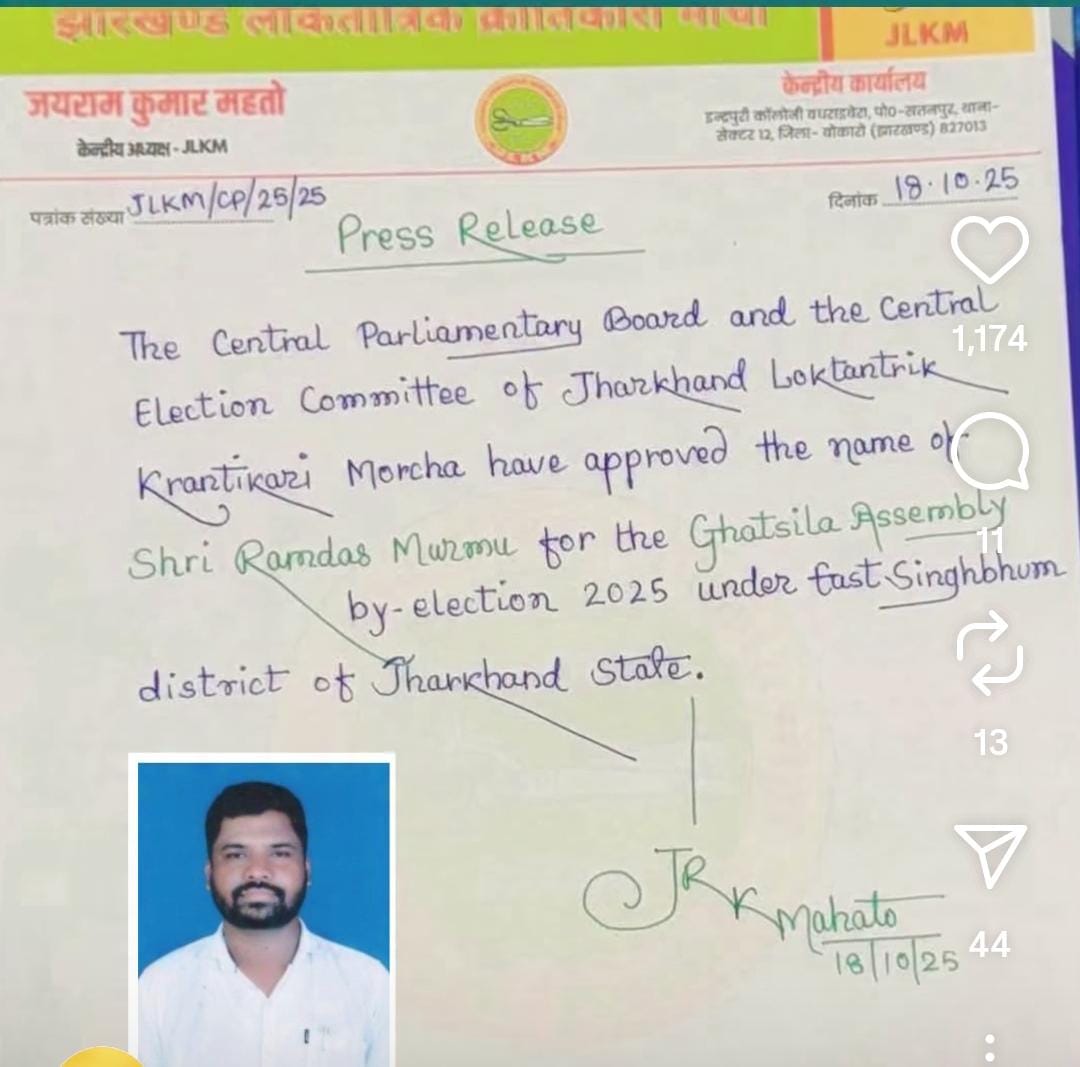 झारखण्ड लोकतांत्रिक क्रांतिकारी मोर्चा
JLKM
जयराम कुमार महतो
केन्द्रीय अध्यक्ष - JLKM
केन्द्रीय कार्यालय
इन्द्रपुरी कॉलोनी पो०-रतनपुर, थाना-
सेक्टर 12, जिला- बोकारो (झारखण्ड) 827013
पत्रांक संख्या JLKM/CP/25/25
दिनांक 18.10.25
Press Release
The Central Parliamentary Board and the Central
Election Committee of Jharkhand Loktantrik
Krantikari Morcha have approved the name of
Shri Ramdas Murmu for the Ghatsila Assembly
by-election 2025 under East Singhbhum
district of Jharkhand State.
JRK Mahato
18/10/25
1,174
11
13
44